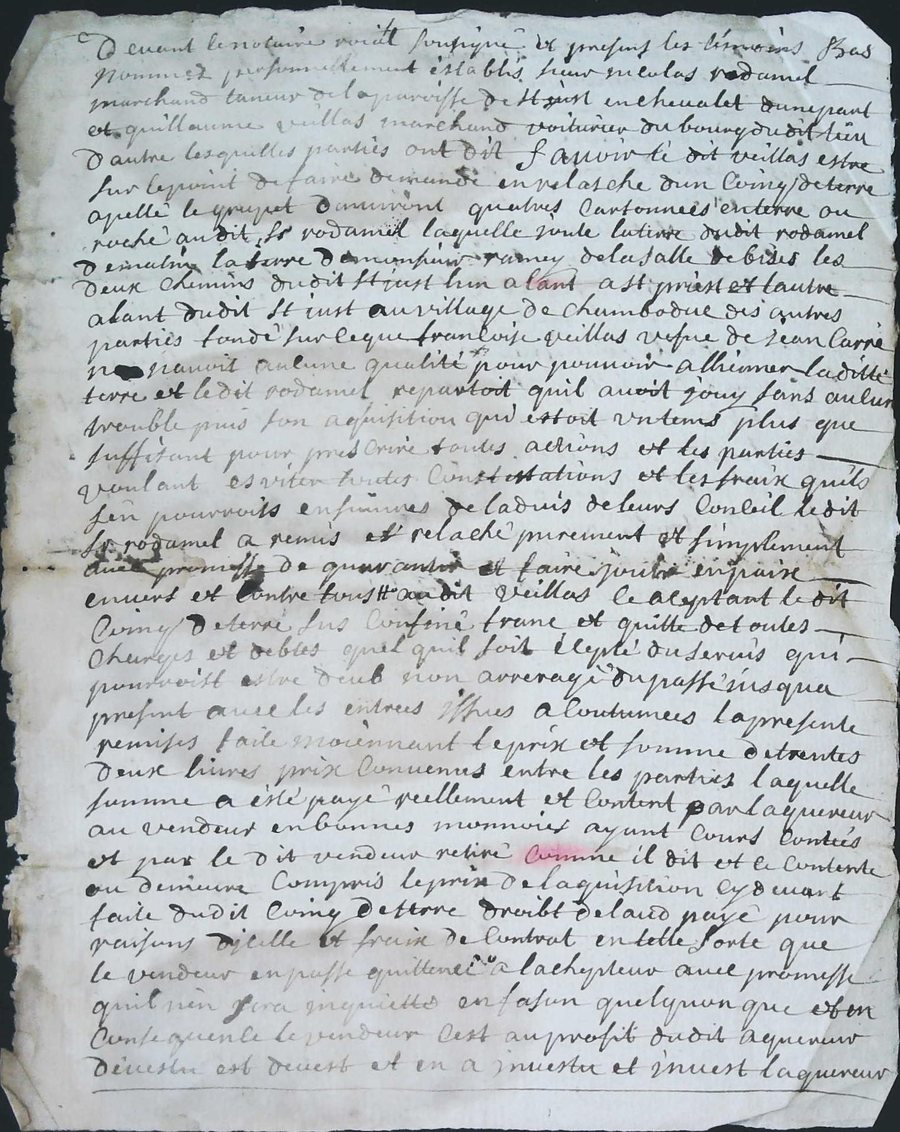 Devant le notaire roial soussigné et presens les témoins Bas
nommez personnellement establis sieur nicolas rodamel
marchand taneur de la paroisse de St just en chevalet dune part
et guillaume veillas marchand voiturier du bourg dudit lieu
dautre lesquelles parties ont dit savoir le dit veillas estre
sur le point de faire demande en relasche dun Coing de terre
apellé le grupet danviront quatres Cartonnees en terre ou
roché audit Sr rodamel laquelle joute la tirre dudit rodamel
de matin la terre de monsieur ramey de la salle de bises les
deux chemins dudit St just lun alant a st priest et lautre
alant dudit St just au village de Chambodue des autres
parties fondé sur ce que francoise veillas vefve de jean Carré
navoit aulcune qualité pour pouvoir alliéner laditte
terre et ledit rodamel repartoit quil avoit jouy sans aulcun
trouble puis son aquisition qui estoit un tems plus que
suffisant pour prescrire toutes actions et les parties
voulant esviter toutes Contestations et les fraix quils
sen pourroits ensuivres de ladvis de leurs Conceil ledit
Sr rodamel a remis et relaché purement et simplement
avec promesse de guarantir et faire jouir en paix
envers et Contre tous audit veillas ce aceptant le dit
Coing de terre sus Confiné franc et quitte de toutes
Charges et debtes quel quil soit exepté du servis qui
pourroist estre deub non arreragé du passé jusqua
present avec les entrees issues acoutumees la presente
remises faite moiennant le prix et somme de trentes
deux livres prix Convenues entre les parties laquelle
somme a esté payé reellement et Content par laquereur
au vendeur en bonnes monnoies ayant Cours Contées
et par le dit vendeur retiré Comme il dit et ce Contente
ou demeure Compris le prix de laquisition Cy devant
faite dudit Coing de terre droibt de laud payé pour
raisons dicelle et fraix de Contrat en telle sorte que
le vendeur en passe quittence a lachepteur avec promesse
quil nen sera inquietté en fason quelquonque et en
Consequence le vendeur cest au profit dudit aquereur
devestu et devest et en a investu et invest laquereur